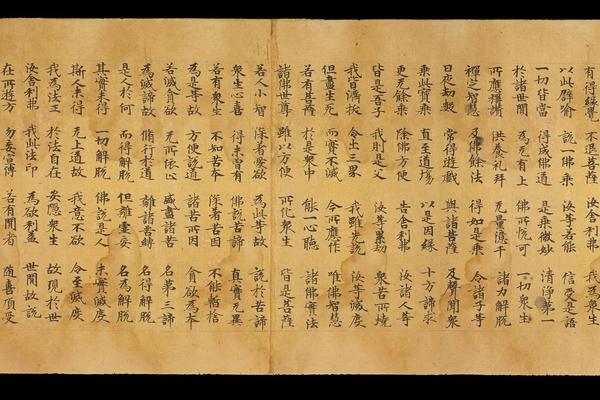 有得緣覺 不退菩薩 汝舍利弗 我為衆生
以此譬喻 說一佛乘 汝等若能 信受是語
一切皆當 得成佛道 是乘微妙 清淨第一
於諸世間 為无有上 佛所悅可 一切衆生
所應稱讚 供養礼拜 无量億千 諸力解脫
禪定智慧 及佛餘法 得如是乘 令諸子等
日夜劫數 常得遊戲 與諸菩薩 及聲聞衆
乘此寶乘 直至道場 以是因緣 十方諦求
更无餘乘 除佛方便 告舍利弗 汝諸人等
皆是吾子 我則是父 汝等累劫 衆苦所燒
我皆濟拔 令出三界 我雖先說 汝等滅度
但盡生死 而實不滅 今所應作 唯佛智慧
若有菩薩 於是衆中 能一心聽 諸佛實法
諸佛世尊 雖以方便 所化衆生 皆是菩薩
若人小智 深著愛欲 為此等故 說於苦諦
衆生心喜 得未曾有 佛說苦諦 真實无異
若有衆生 不知苦本 深著苦因 不能暫捨
為是等故 方便說道 諸苦所因 貪欲為本
若滅貪欲 无所依止 滅盡諸苦 名第三諦
為滅諦故 脩行於道 離諸苦縛 名得解脫
是人於何 而得解脫 但離虛妄 名為解脫
其實未得 一切解脫 佛說是人 未實滅度
斯人未得 无上道故 我意不欲 令至滅度
我為法王 於法自在 安隱衆生 故現於世
汝舍利弗 我此法印 為欲利益 世間故說
在所遊方 勿妄宣傳 若有聞者 隨喜頂受